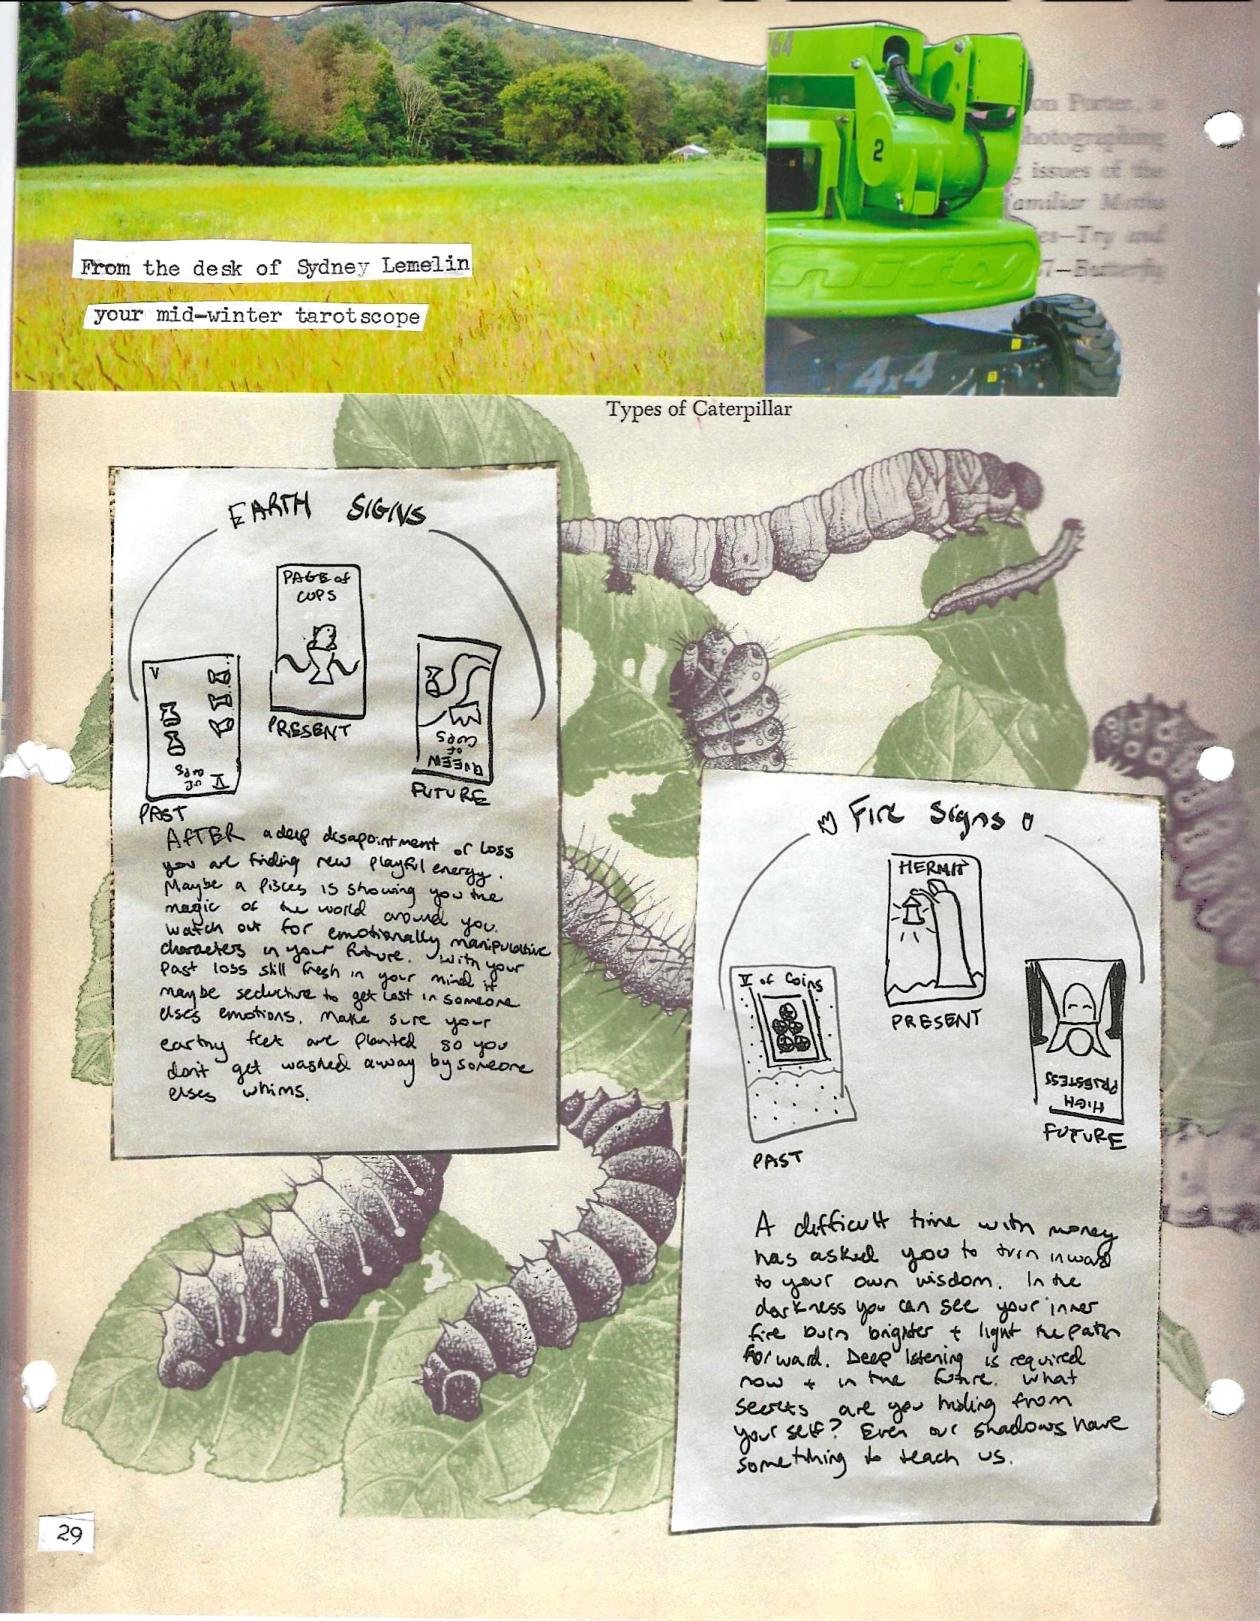 764
2
nifty
4x4
on Porter, is
hotographing
g issues of the
familiar Moths
es—Try and
37—Butterfly
From the desk of Sydney Lemelin
your mid-winter tarotscope
Types of Caterpillar
EARTH SIGNS
PAGE of
CUPS
PRESENT
V
V
of
CUPS
PAST
QUEEN
OF
CUPS
FUTURE
AFTER a deep disapointment or loss
you are finding new playful energy.
Maybe a Pisces is showing you the
magic of the world around you.
watch out for emotionally manipulative
characters in your future. With your
past loss still fresh in your mind it
maybe seductive to get lost in someone
elses emotions. Make sure your
earthy feet are planted so you
don't get washed away by someone
elses whims.
Fire Signs
HERMIT
PRESENT
V of Coins
PAST
HIGH
PRIESTESS
FUTURE
A difficult time with money
has asked you to turn inward
to your own wisdom. In the
darkness you can see your inner
fire burn brighter + light the path
forward. Deep listening is required
now + in the future. What
secrets are you hiding from
your self? Even our shadows have
something to teach us.
29